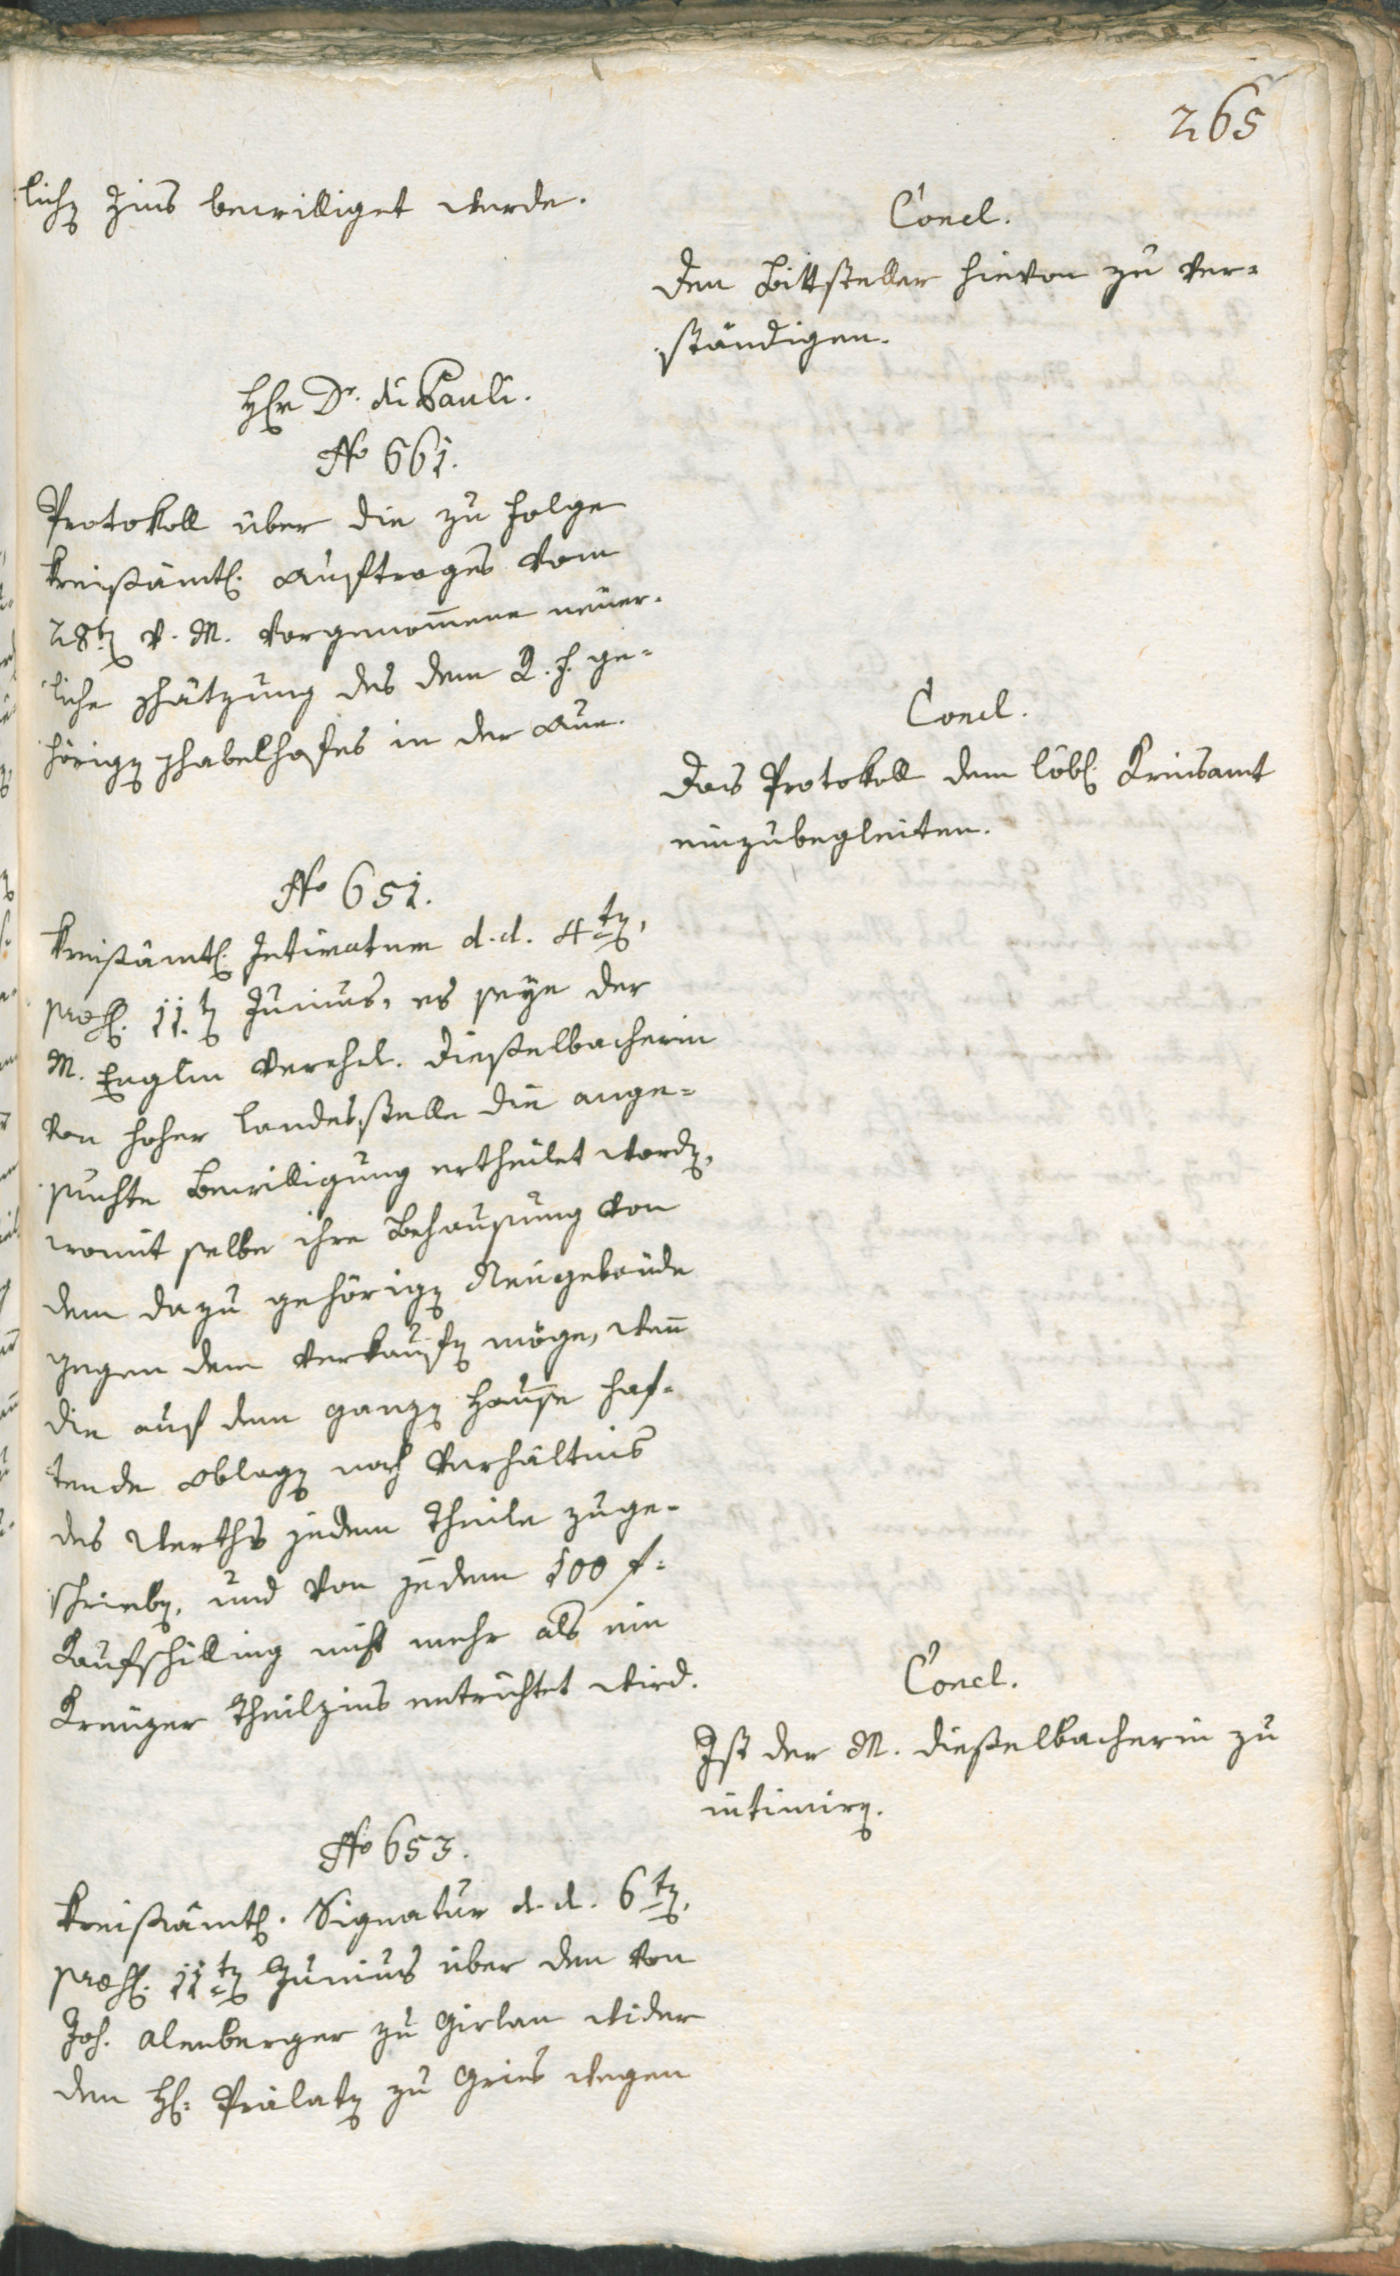 265
lichen Zins bewilliget werde.
Concl.
Den Bittsteller hievon zu ver-
ständigen.
Herr Dr. di Pauli.
No 661.
Protokoll über die zu Folge
kreißämtl. Auftrages vom
28ten v. M. vorgenom̅ene neuer-
liche Schätzung des dem R. F. ge-
hörigen Schabelhofes in der Aue.
Concl.
Das Protokoll dem löbl. Kreisamt
einzubegleiten.
No 651.
Kreißämtl. Intimatum d. d. 4ten,
præs. 11ten Junius, es seye der
M. Englin verehel. Dießelbacherin
von hoher Landesstelle die ange-
suchte Bewilligung ertheilet worden,
womit selbe ihre Behausung von
dem dazu gehörigen Neugebäude
gegen dem verkaufen möge, wen̅
die auf dem ganzen Hause haf-
tende Oblagen nach Verhältnis
des Werths jedem Theile zuge-
schrieben, und von jedem 100 f.
Kaufschilling nicht mehr als ein
Kreuzer Theilzins entrichtet wird.
Concl.
Ist der M. Dießelbacherin zu
intimiren.
No 653.
Kreißämtl. Signatur d. d. 6ten,
præs. 11ten Junius über den von
Joh. Alenberger zu Girlan wider
den H. Prälaten zu Gries wegen